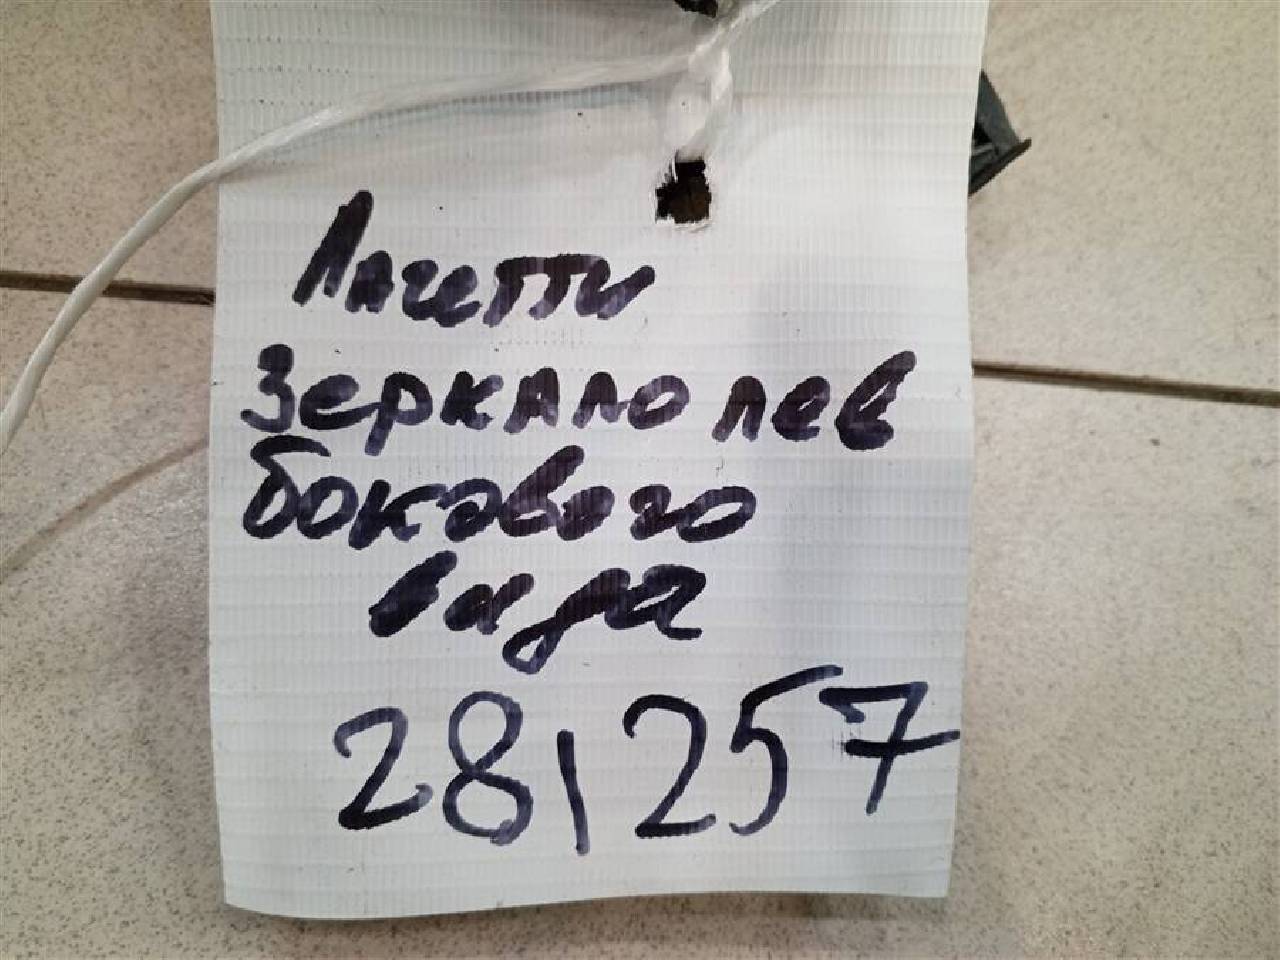 Лачетти
Зеркало лев
бокового
вида
281257